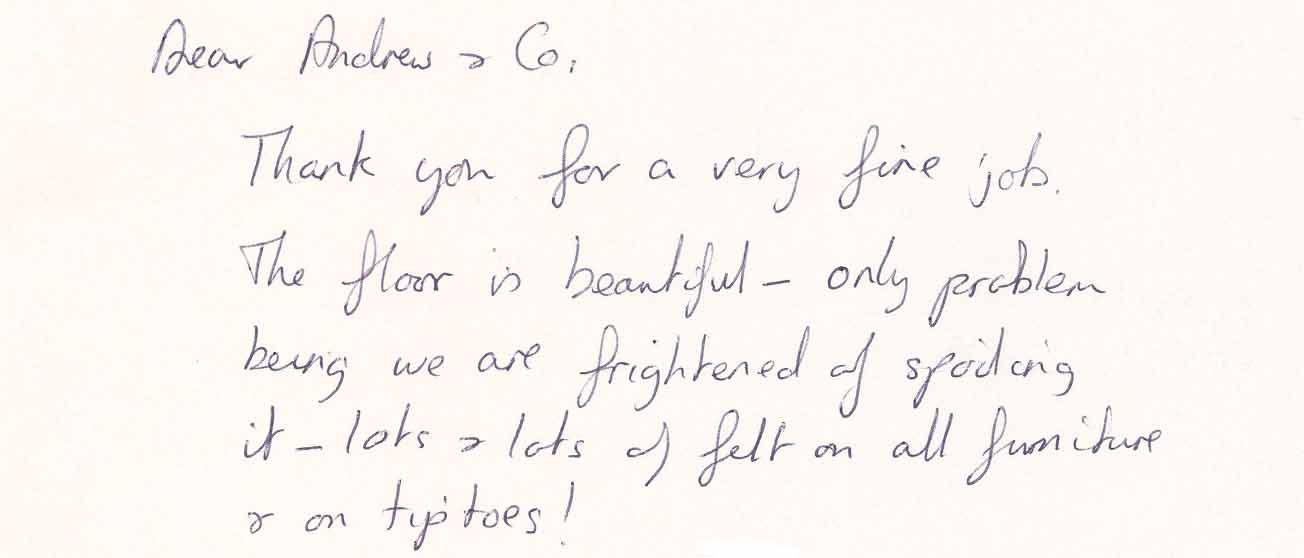 Dear Andrew & Co,
Thank you for a very fine job.
The floor is beautiful – only problem
being we are frightened of spoiling
it – lots & lots of felt on all furniture
& on tiptoes!